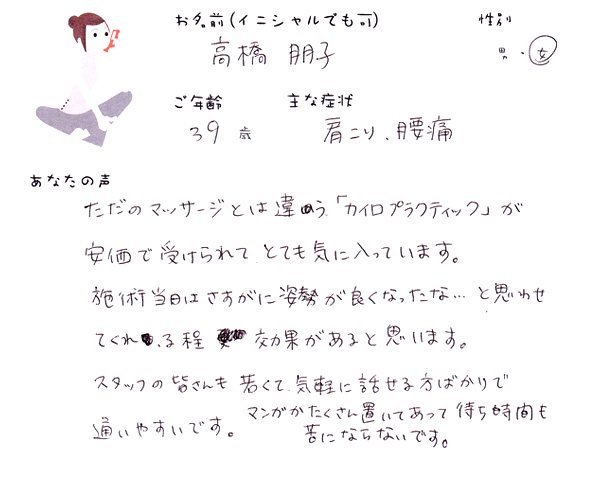 お名前(イニシャルでも可)
性別
高橋 朋子
男・女
ご年齢
主な症状
39歳
肩こり、腰痛
あなたの声
ただのマッサージとは違う、「カイロプラクティック」が
安価で受けられて とても気に入っています。
施術当日はさすがに姿勢が良くなったな…と思わせ
てくれる程 効果があると思います。
スタッフの皆さんも 若くて、気軽に話せる方ばかりで
通いやすいです。マンガがたくさん置いてあって 待ち時間も
苦にならないです。